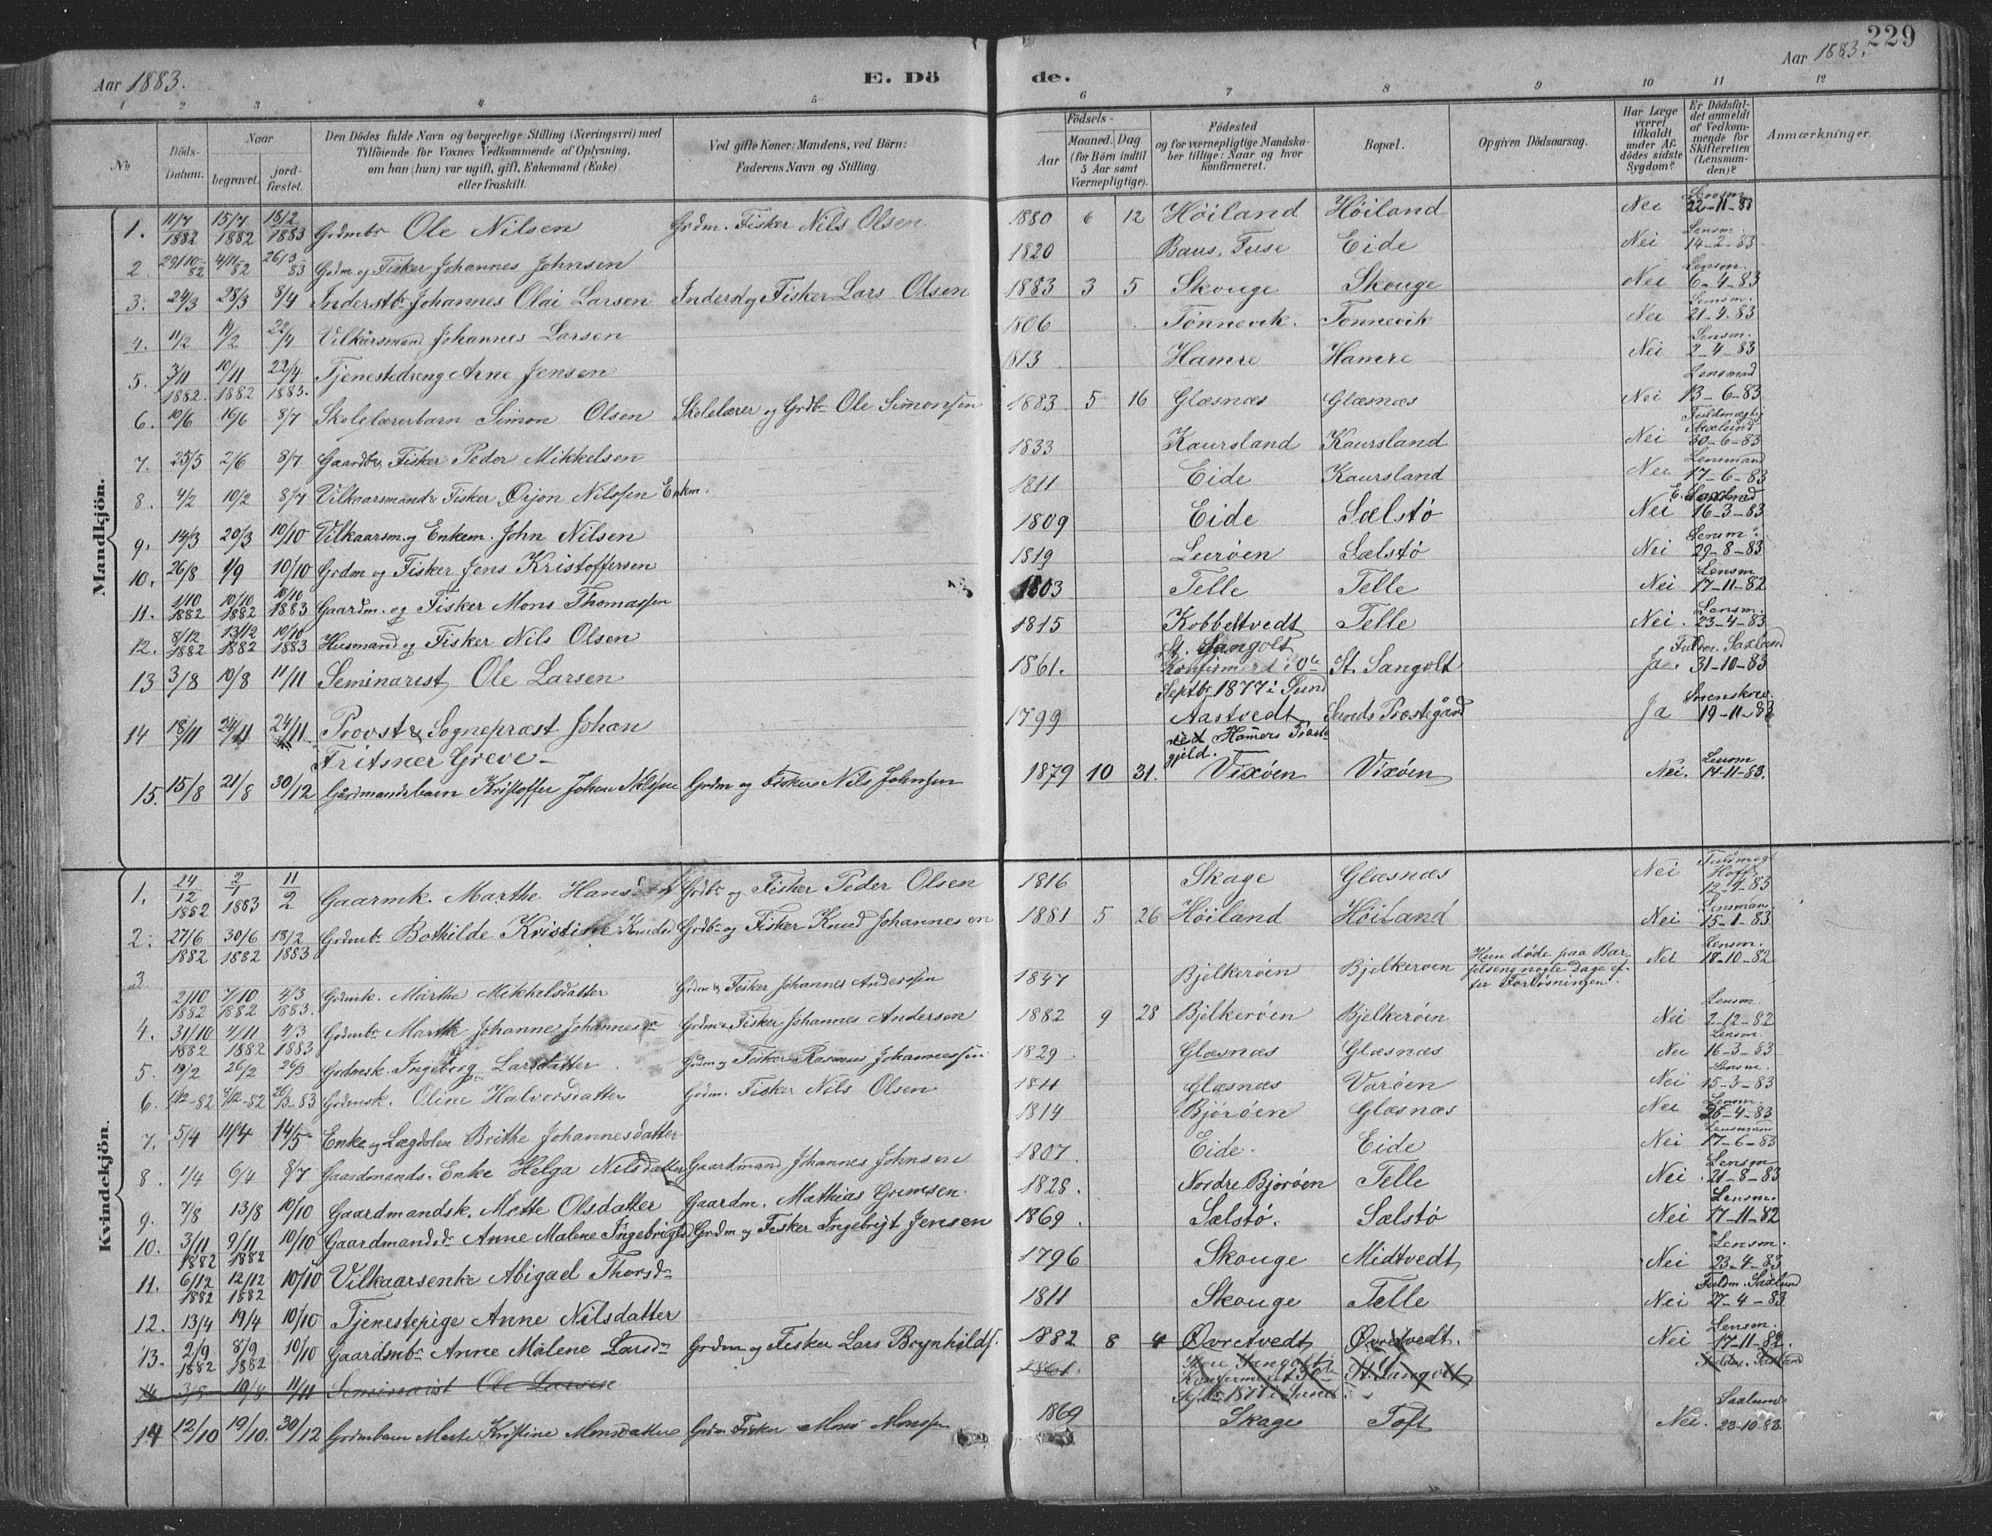 Aar 1883.
E. Dö
de.
Aar 1883.
229
1 2 3 4 5 6 7 8 9 10 11 12
No
Döds-Datum.
Naar
begravet.
jord-fæstet.
Den Dödes fulde Navn og borgerlige Stilling (Næringsvei) med
Tilföiende for Voxnes Vedkommende af Oplysning,
om han (hun) var ugift, gift, Enkemand (Enke)
eller fraskilt.
Ved gifte Koner: Mandens, ved Börn:
Faderens Navn og Stilling.
Födsels-
Aar
Maaned. Dag
(for Börn indtil
5 Aar samt
Værnepligtige).
Födested
og for værnepligtige Mandska-
ber tillige: Naar og hvor
Konfirmeret.
Bopæl.
Opgiven Dödsaarsag.
Har Læge
været
tilkaldt
under Af-
dödes sidste
Sygdom?
Er Dödsfal-
det anmeldt
af Vedkom-
mende for
Skifteretten
(Lensman-
den)?
Anmærkninger.
Mandkjön.
1. 11/7 1882 15/7 1882 18/2 1883 Grdmbr Ole Nilsen Grdm. Fisker Nils Olsen 1880 6 12 Höiland Höiland Nei Lensm 22-11-83
2. 29/10-82 4/11-82 26/3-83 Grdm og Fisker Johannes Johnsen 1820 Baus, Fuse Eide Nei Lensm 14-2-83
3. 24/3 28/3 8/4 Inderstbr Johannes Olai Larsen Inderst og Fisker Lars Olsen 1883 3 5 Skouge Skouge Nei Lensm. 6-4-83
4. 11/2 /2 22/4 Vilkårsmand Johannes Larsen 1806 Tönnevik. Tönnevik Nei Lensm. 21-2.83
5. 3/11 1882. 10/11 1882 22/4 1883. Tjenestedreng Arne Jensen 1813 Hamre Hamre Nei Lensm. 2-4-83
6. 10/6 16/6 8/7 Skolelærerbarn Simon Olsen Skolelærer og Grdbr Ole Simonsen 1883. 5 16 Glæsnæs Glæsnæs Nei Lensmad 13-6-83
7. 25/5 2/6 8/7 Gaardbr Fisker Peder Mikkelsen 1833 Kaursland Kaursland Nei 30-6-83
8. 4/2 10/2 8/7 Vilkaarsmand & Fisker Örjon Nilssen Enkm. 1811 Eide Kaursland Nei Lensmand 17-6-83
9. 14/3 20/3 10/10 Vilkaarsm. og Enkem. John Nilsen 1809 Eide Sælstö Nei 16-3-83
10. 26/8 1/9 10/10 Grdm og Fisker Jens Kristoffersen 1819 Leeröen Sælstö Nei Lensm. 29-8-83
11. 1/10 1882 10/10 1882 10/10 1883 Gaardm. og Fisker Mons Thomassen 1803 Telle Telle Nei Lensm 17-11-82
12. 8/12 1882 13/12 1882 10/10 1883 Husmand og Fisker Nils Olsen 1815 Kobbeltvedt Telle Nei. Lensm. 23-4-83
13 3/8 10/8 11/11 Seminarist, Ole Larsen 1861. St. Sangolt Konfirmerd i 30te Septbr 1877 i Sund St. Sangolt Ja. Fuldm. Saxlund 31-10-83
14 18/11 24/11 24/11 Provst & Sogneprost Johan
Fritsner Greve- 1799 Aastvedt ved Hamers Præste gjeld. Sunds Prostegård Ja 19-11-83
15. 15/8 21/8 30/12 Gårdmandsbarn Kristoffer Johan Nilssen Grdm og Fisker Nils Johnsen 1879 10 31. Vixöen Vixöen Nei. Lensm 14-11-83.
Kvindekjön.
1. 24/12 1882 2/1 1883 11/2 Gaarmk. Marthe Hans Grdbr og Fisker Peder Olsen 1816 Skage Glæsnæs Nei 83
2. 27/6 1882 30/6 1882 18/2 1883 Grdmbr Bothilde Kristine Knudsd Grdbr og Fisker Knud Johannesen 1881 5 26 Höiland Höiland Nei Lensman. 15-1-83
3 2/10 1882 7/10 1882 4/3 1883. Grdmk. Marthe Mikkelsdatter Grdm & Fisker Johannes Anderssen 1847 Bjelkeröen Bjelkeröen Hun döde paa Bar-
selseng nogle Dage ef-
ter Forlösningen. Nei Lensm. 18-10-82
4. 31/10 1882 4/11 1882 4/3 1883 Grdmbr Marthe Johanne Johannesdr Grdm & Fisker Johannes Andersen 1882 9 28 Bjelkeröen Bjelkeröen Nei Lensm. 2-12-82
5. 19/2 26/2 26/3 Grdmsk. Ingeborg Larsdatter Grdm og Fisker Rasmus Johannessen 1829. Glæsnæs Glæsnæs Nei Lensm. 16-3-83
6. 1/12-82 7/12-82 26/3-83 Grdmsk. Oline Halvorsdatter Grdm. Fisker Nils Olsen 1811 Glæsnæs Varöen Nei Lensm. 15-3-83
7. 5/4 14/4 14/5 Enke og Lægdslem Brithe Johannesdatter 1814 Björöen Glæsnæs Nei Lensm. 26-4-83
8. 1/4 6/4 8/7 Gaardmands. Enke Helga Nilsdatter Gaardmand Johannes Johnsen 1807. Eide. Eide Nei Lensmann 17-6-83
9. 7/8 13/8 10/10 Gaardmandsk. Mette Olsdatter Gaardm. Mathias Grimsen. 1828. Nordre Björöen Telle Nei Lensm .21-8-83
10. 3/11 1882 9/11 1882 10/10 Gaardmandsdr Anne Malene Ingebrigtsd Grdm og Fisker Ingebrigt Jensen 1869. Sælstö. Sælstö Nei Lensm. 17-11-82
11. 6/12 1882 12/12 1882 10/10 Vilkaarsenke Abigael Thorsdr 1796 Skouge Midtvedt Nei Lensm. 23-4-83
12. 13/4 19/4 10/10 Tjenestepige Anne Nilsdatter 1811 Skouge Telle Nei Fuldm. Saxlund 27-4-83
13. 2/9 1882 8/9 1882 10/10 Gaardmbr Anne Malene Larsdr Grdm og Fisker Lars Brynhilds. 1882 8 4 Övretvedt Övretvedt. Nei Lensm. 17-11-82
14 3/8 10/8 11/11 Seminarist Ole Larsen 1861. Store Sangolt Konfirmeret 30te Septbr 1877 i Sund St. Sangolt Fuldm. Saxlund
14 12/10 19/10. 30/12 Grdmbarn Marte Kristine Monsdatter Grdm Fisker Mons Monssen 1869 Skage Toft Nei. Saxlund 23-10.83.